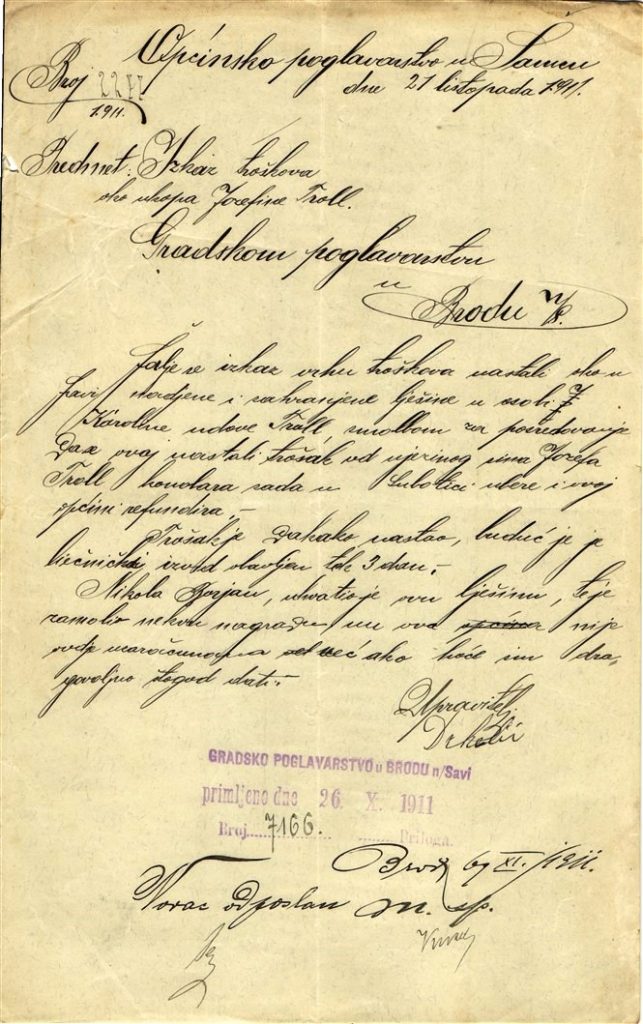 Općinsko poglavarstvo u Šamcu
dne 21 listopada 1911.
Broj 2271
1911.
Predmet: Izkaz troškova
oko ukopa Jozefine Troll.
Gradskom poglavarstvu
u
Brodu n/S.
Šalje se izkaz vrhu troškova nastali oko u
Savi nadjene i sahranjene lješine u osobi
Karoline udove Troll, smolbom za posredovanje
Da ovaj nastali trošak od njezinog sina Jozefa
Troll sada u Subotici ubere i ovoj
općini refundira,
Trošak je nastao, buduć je
liečnički izvid obavljen tek 3 dan.
Nikola Bosjan, uhvatio je ovu lješinu, te je
zamolio nekuu nagradu mu ova općina nije
ovdje već ako hoće im dra,
govoljno štogod dati.
Upravitelj:
GRADSKO POGLAVARSTVO u BRODU n/Savi
primljeno dne 26. X. 1911
Broj 7166. Priloga.
Brod, 6/XI. 1911.
Novac odposlan